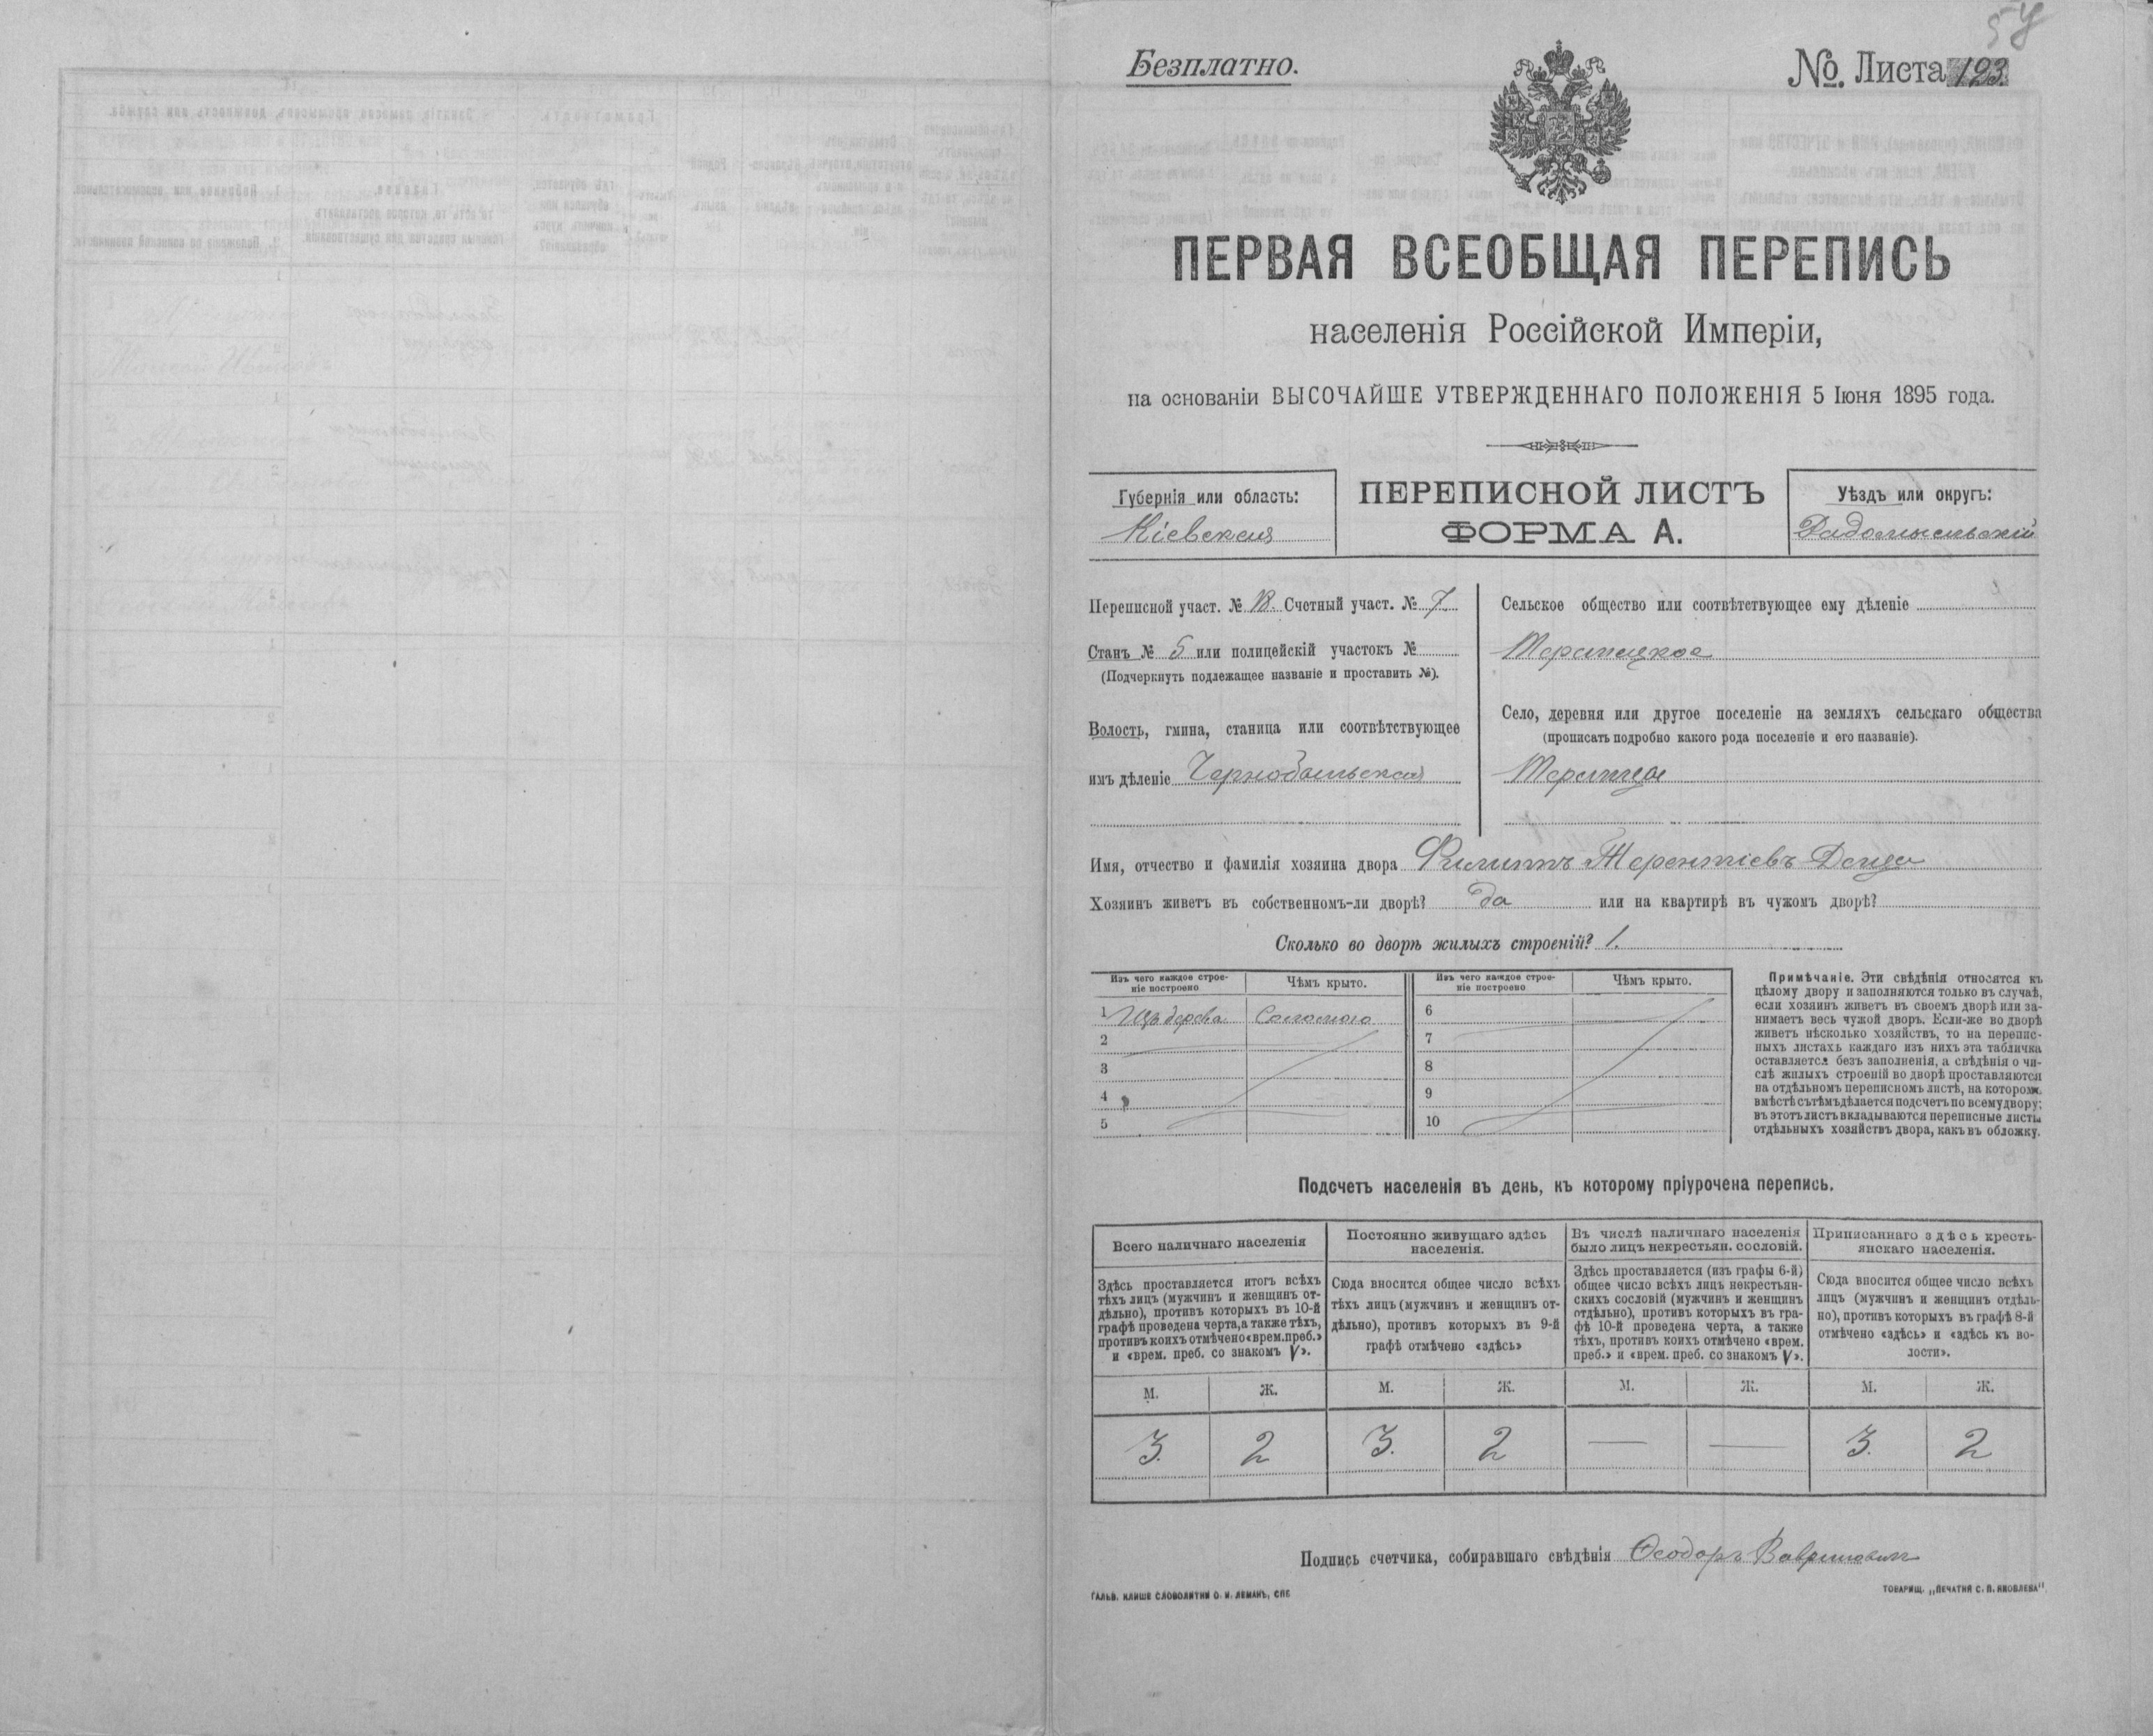 54
Безплатно.
№. Листа 123.
ПЕРВАЯ ВСЕОБЩАЯ ПЕРЕПИСЬ
населенія Россійской Имперіи,
на основаніи ВЫСОЧАЙШЕ УТВЕРЖДЕННАГО ПОЛОЖЕНІЯ 5 Іюня 1895 года.
Губернія или область:
Кіевская
ПЕРЕПИСНОЙ ЛИСТЪ
ФОРМА А.
Уѣздъ или округъ:
Радомысльскій
Переписной участ. № Счетный участ. № 7
Станъ № 5 или полицейскій участокъ №
(Подчеркнуть подлежащее названіе и проставить №).
Волость, гмина, станица или соотвѣтствующее
имъ дѣленіе Чернобыльская
Сельское общество или соотвѣтствующее ему дѣленіе
Теремецкое
Село, деревня или другое поселеніе на земляхъ сельскаго общества
(прописать подробно какого рода поселеніе и его названіе).
Теремцы
Имя, отчество и фамилія хозяина двора Филиппъ Терентіевъ
Хозяинъ живетъ въ собственномъ-ли дворѣ? да или на квартирѣ въ чужомъ дворѣ?
Сколько во дворѣ жилыхъ строеній? 1.
Изъ чего каждое строе-
ніе построено
Чѣмъ крыто.
Изъ чего каждое строе-
ніе построено
Чѣмъ крыто.
1 Изъ дерева Соломою 6
2 7
3 8
4 9
5 10
Примѣчаніе. Эти свѣдѣнія относятся къ
цѣлому двору и заполняются только въ случаѣ,
если хозяинъ живетъ въ своемъ дворѣ или за-
нимаетъ весь чужой дворъ. Если-же во дворѣ
живетъ нѣсколько хозяйствъ, то на перепис-
ныхъ листахъ каждаго изъ нихъ эта табличка
оставляется безъ заполненія, а свѣдѣнія о чи-
слѣ жилыхъ строеній во дворѣ проставляются
на отдѣльномъ переписномъ листѣ, на которомъ
вмѣстѣ сътѣмъ дѣлается подсчетъ по всему двору;
въ этотъ листъ вкладываются переписные листы
отдѣльныхъ хозяйствъ двора, какъ въ обложку.
Подсчетъ населенія въ день, къ которому пріурочена перепись.
Всего наличнаго населенія
Здѣсь проставляется итогъ всѣхъ
тѣхъ лицъ (мужчинъ и женщинъ от-
дѣльно), противъ которыхъ въ 10-й
графѣ проведена черта, а также тѣхъ,
противъ коихъ отмѣчено «врем. преб.»
и «врем. преб. со знакомъ V».
Постоянно живущаго здѣсь
населенія.
Сюда вносится общее число всѣхъ
тѣхъ лицъ (мужчинъ и женщинъ от-
дѣльно), противъ которыхъ въ 9-й
графѣ отмѣчено «здѣсь»
Въ числѣ наличнаго населенія
было лицъ некрестьян. сословій.
Здѣсь проставляется (изъ графы 6-й)
общее число всѣхъ лицъ некрестьян-
скихъ сословій (мужчинъ и женщинъ
отдѣльно), противъ которыхъ въ гра-
фѣ 10-й проведена черта, а также
тѣхъ, противъ коихъ отмѣчено «врем.
преб.» и «врем. преб. со знакомъ V».
Приписаннаго здѣсь кресть-
янскаго населенія.
Сюда вносится общее число всѣхъ
лицъ (мужчинъ и женщинъ отдѣль-
но), противъ которыхъ въ графѣ 8-й
отмѣчено «здѣсь» и «здѣсь къ во-
лости».
М. Ж. М. Ж. М. Ж. М. Ж.
3. 2 3. 2 — — 3. 2
Подпись счетчика, собиравшаго свѣдѣнія Ѳеодоръ
ГАЛЬВ. КЛИШЕ СЛОВОЛИТНИ О. И. ЛЕМАНЪ, СПБ
ТОВАРИЩ. „ПЕЧАТНЯ С. П. ЯКОВЛЕВА“